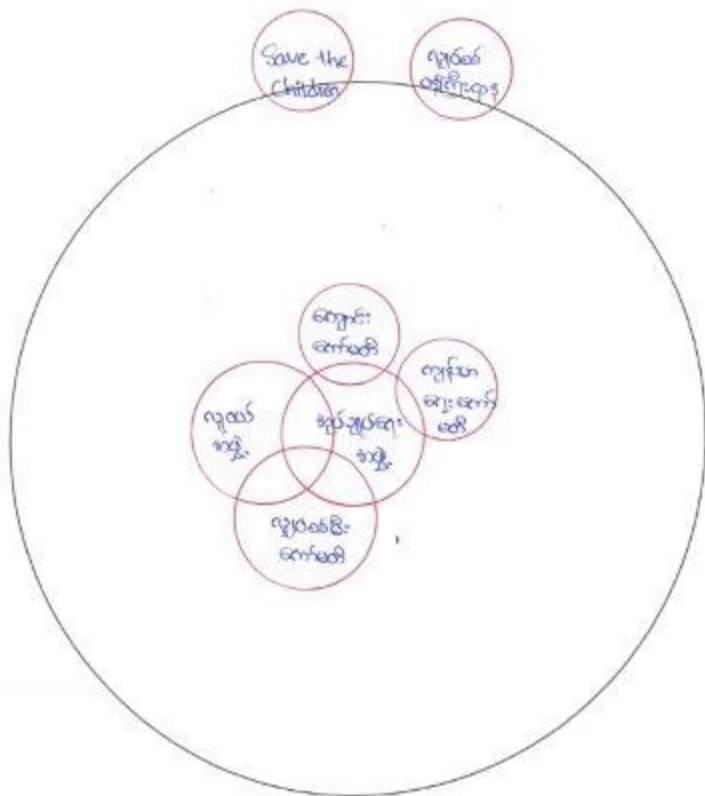 Save the
Children
လျှပ်စစ်
ဝန်ကြီးဌာန
ကျောင်း
ကော်မတီ
ကျန်းမာ
ရေးကော်
မတီ
လူငယ်
အဖွဲ့
အုပ်ချုပ်ရေး
အဖွဲ့
လျှပ်စစ်မီး
ကော်မတီ